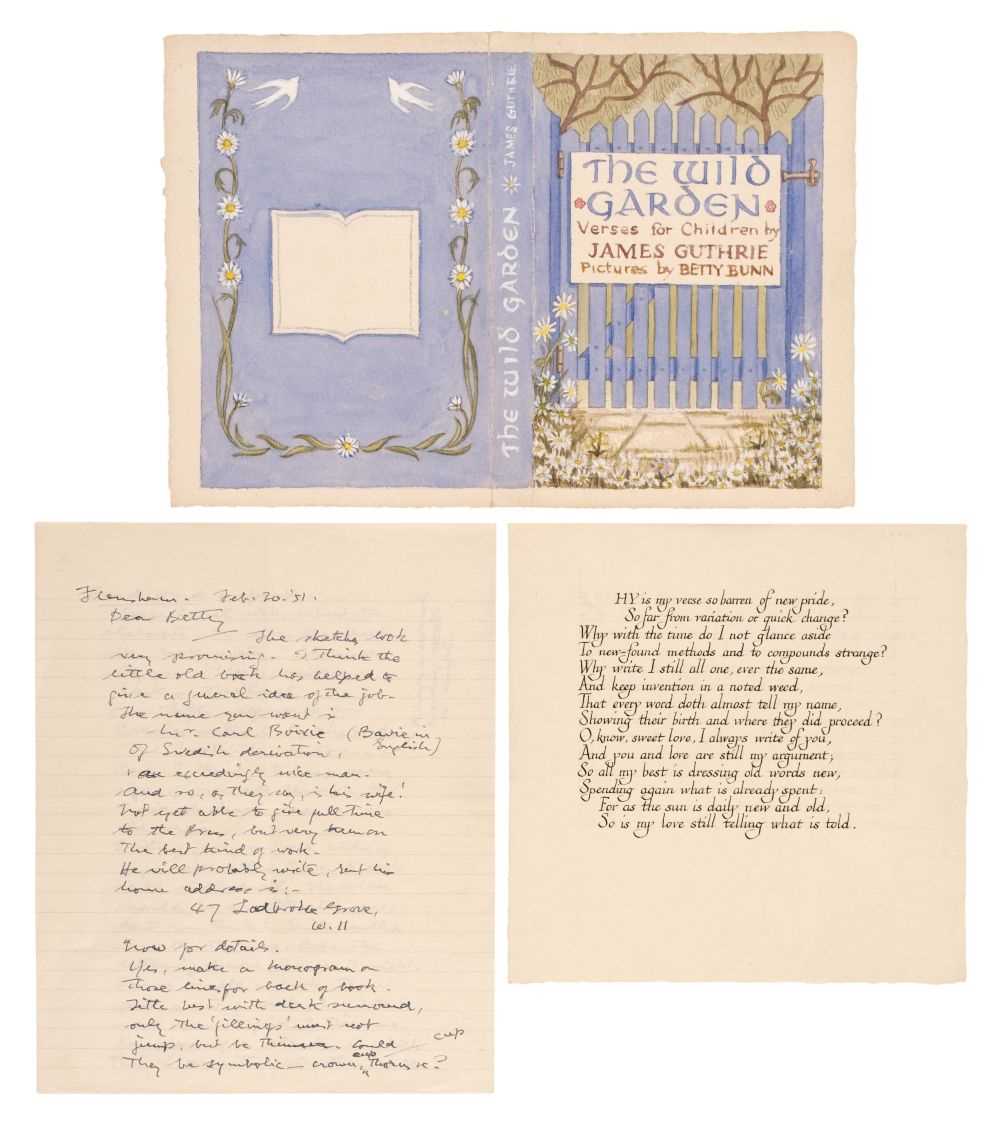 THE WILD GARDEN * JAMES GUTHRIE
THE WILD
GARDEN
Verses for Children by
JAMES GUTHRIE
Pictures by BETTY BUNN
Flansham. Feb. 20. '51.
Dear Betty
The sketches look
very promising. I think the
little old book has helped to
give a general idea of the job.
The name you want is
Mr. Carl Boivie (Bavie in
English)
Of Swedish derivation,
exceedingly nice man.
And so, as they say, is his wife!
Not yet able to give full time
to the Press, but very keen on
the best kind of work.
He will probably write, but his
home address is:-
47 Ladbroke Grove,
W. 11
Now for details.
Yes, make a monogram on
those lines for back of book.
Title best with dark surround,
only the 'fillings' must not
jump, but be thinner. Could
cup
They be symbolic — crown, cup, Thorns &c?
HY is my verse so barren of new pride,
So far from variation or quick change?
Why with the time do I not glance aside
To new-found methods and to compounds strange?
Why write I still all one, ever the same,
And keep invention in a noted weed,
That every word doth almost tell my name,
Showing their birth and where they did proceed?
O, know, sweet love, I always write of you,
And you and love are still my argument;
So all my best is dressing old words new,
Spending again what is already spent:
For as the sun is daily new and old,
So is my love still telling what is told.